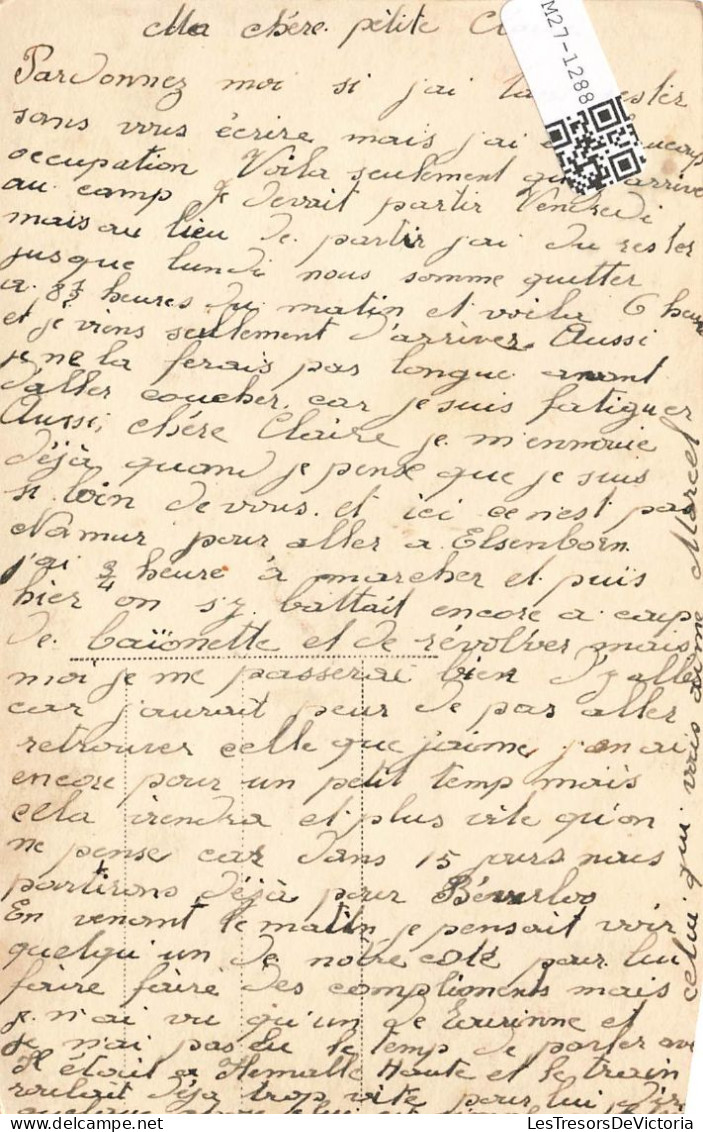 Ma chère petite
M27-1288
Pardonnez moi si j'ai rester
sans vous écrire mais j'ai
occupation Voila seulement arrive
au camp je devait partir Vendredi
mais au lieu de partir j'ai du rester
jusque lundi nous somme quitter
a 8 heures du matin et voila 6 heure
et je viens seulement d'arriver Aussi
je ne la ferais pas longue avant
d'aller coucher. car je suis fatiguer
Aussi, chére Claire je m'ennouie
déjà quand je pense que je suis
si loin de vous. et ici ce n'est pas
Namur pour aller a Elsenborn
j'ai 3/4 heure à marcher et puis
hier on s'y battait encore a coup
de baïonette et de révolver mais
moi je me passerai bien d'y aller
car j'aurait peur de pas aller
retrouver celle que j'aime j'en ai
encore pour un petit temp mais
cela viendra et plus vite qu'on
ne pense car dans 15 jours nous
partirons déjà pour Béverloo
En venant le matin je pensait voir
quelqu'un de notre coté pour lui
faire faire des compliments mais
je n'ai vu qu'un de Tourinne et
je n'ai pas eu le temp de parler
Il était a Hemalle Haute et le train
roulait déja trop vite pour lui
celui qui vous aime Marcel
LesTresorsDeVictoria